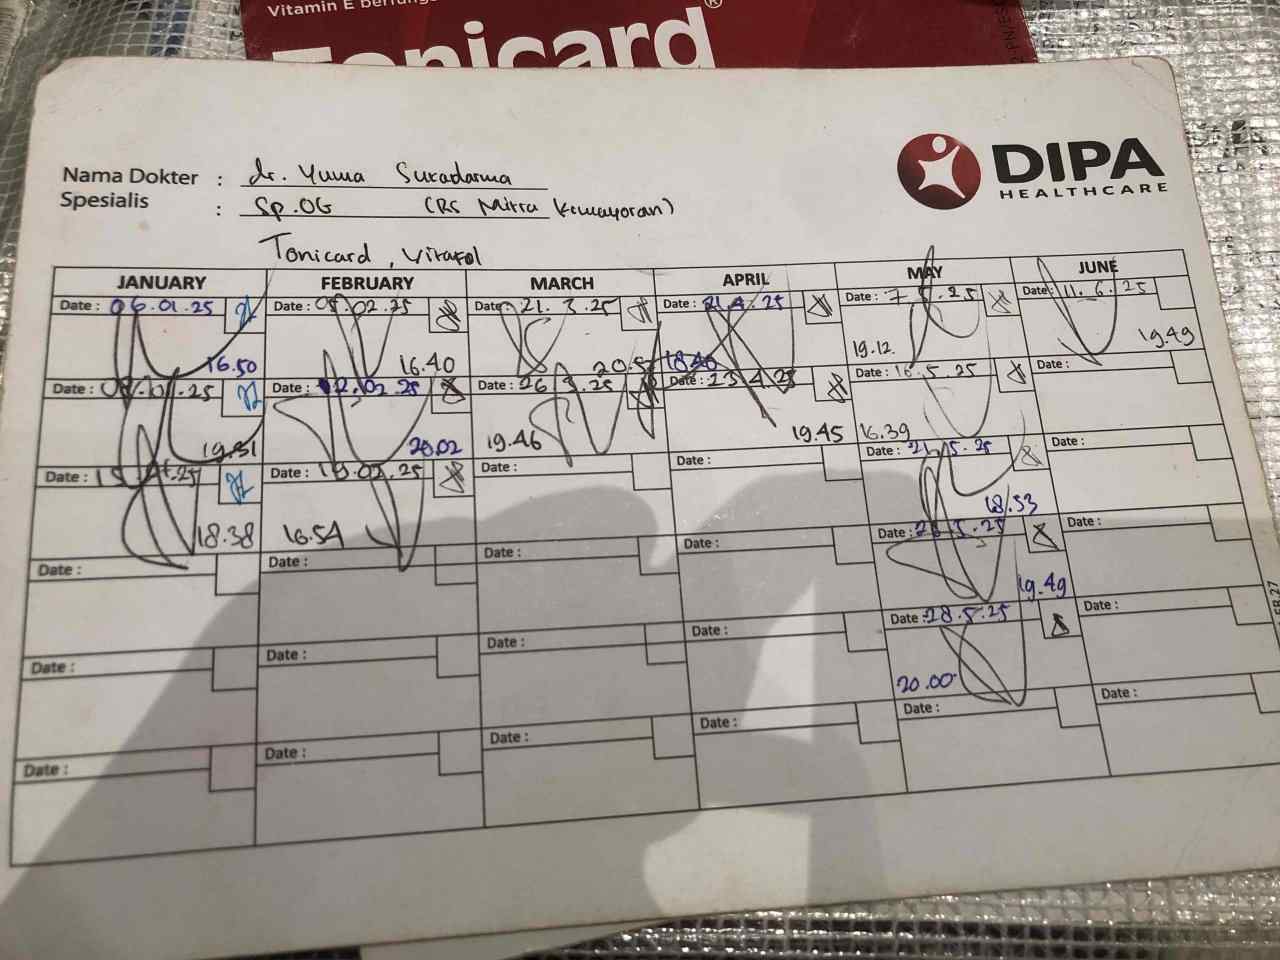 Vitamin E
Tonicard®
DIPA
HEALTHCARE
Nama Dokter : dr. Yuma Suradarma
Spesialis : Sp.OG (RS Mitra Kemayoran)
Tonicard, Vitafol
JANUARY FEBRUARY MARCH APRIL MAY JUNE
Date : 06.01.25 Date : 05.02.25 Date : 21.3.25 Date : 21.4.25 Date : 7.5.25 Date : 11.6.25
16.50 16.40 18.46 19.12. 19.49
Date : Date : 12.02.25 Date : 26.3.25 Date : 23.4.25 Date : 16.5.25 Date :
19.31 20.02 19.46 19.45 16.39
Date : Date : 19.02.25 Date : Date : Date : 21.5.25 Date :
18.38 16.54 18.53
Date : Date : Date : Date : Date : 26.5.25 Date :
19.49
Date : Date : Date : Date : Date : 28.5.25 Date :
20.00
Date : Date : Date : Date : Date : Date :